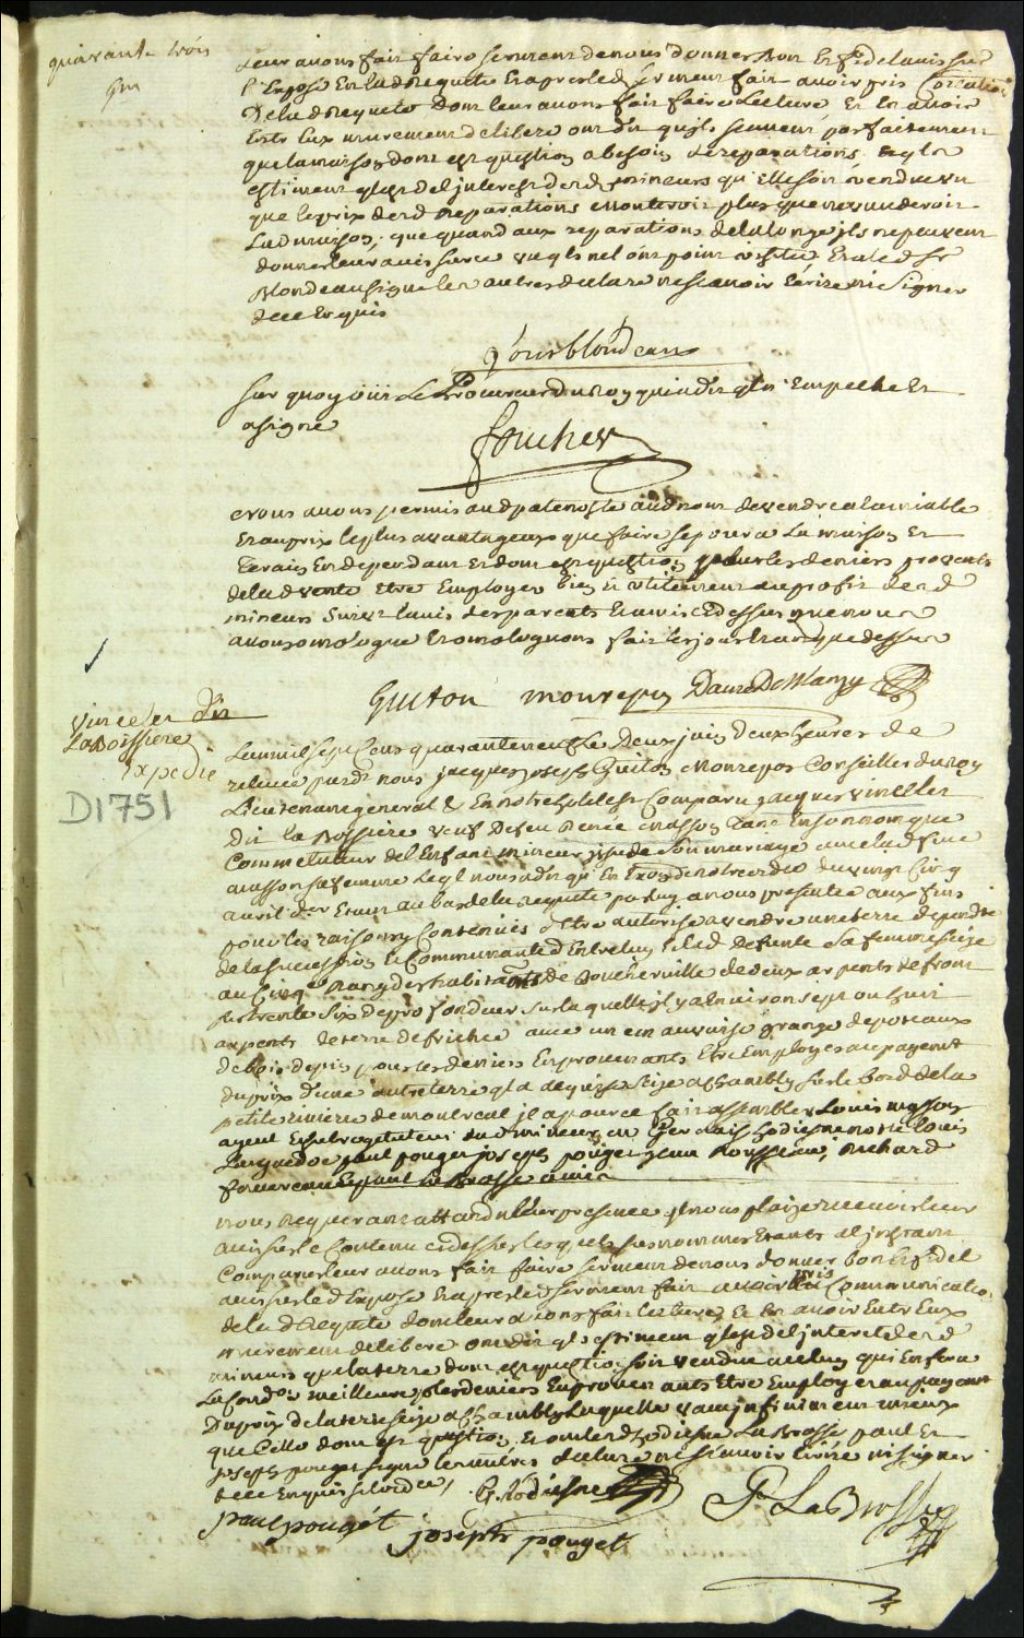 quarante trois
Leur avons fait faire serment de nous donner bon et fidel avis sur
l'Exposé En lad Requete Et apres led serment fait avoir pris Con\ation
De lad Requete Dont leur avons fait faire Lecture et En avoir
Entr Eux murement deliberé ont dit quils scavent parfaitement
que la maison dont est question a besoin de reparations et qls
estiment qlest del jnterest desd mineurs qu'elle soit vendue vu
que le prix desd reparations monteroit plus que ne vauderoit
Lad maison, que quand aux reparations de la longe jls ne peuvent
donner leur avis sur ce vu qls ne lont point visitée Et a led Sr
Blondeau signe les autres declaré ne scavoir Ecrire ni signer
de ce Enquis
Jourblondeau
Sur quoy oüi Le Procureur du Roy qui a dit qln Empeche Et
a signe
foucher
Nous avons permis aud patenoste aud nom de vendre a lamiable
Et au prix le plus avantageux que faire se poura La maison Et
Terain En dependant Et dont est question pour les deniers provents
de lad vente Etre Employes bien et utilement au profit desd
mineurs suivt lavis des parents Et amis cy dessus que nous
avons omologué Et omologuons fait les jour Et an que dessus
Guiton monrepos Danré De Blanzy
Vincelet dit
LaBoissiere
Expedié
D1751
Lan mil sept Cens quarante neuf Le Deux juin deux heures de
relevée pardt nous jacques joseph Guiton Monrepos Conseiller du Roy
Lieutenant general &c En notre hotel est Comparu jacques vincelet
Dit la Bossiere veuf De feu Renée masson Tant En son nom que
Comme tuteur del Enfant mineur jssu de son mariage avec lad feue
masson sa femme Leql nous a dit qu'En Execon de notre ordce du vingt Cinq
avril der Etant au bas de la requete par luy a nous presentée aux fins
pour les raisons y Contenües d'Etre autorisé a vendre une terre dependte
de la succession Et Communauté d'Entre luy Et lad Defunte Sa femme seize
au Cinqe Rang des habitants de Boucherville de deux arpents de front
sur trente six de profondeur sur laquelle jl y a Environ sept ou huit
arpents de terre defrichée avec un mauvaise grange de poteaux
de bois debout pour les deniers En provenants Etre Employes au payemt
du prix d'une autre terre ql a acquise seize a Chambly sur le bord de la
petite riviere de montreal jl a pour ce fait assembler Louis masson
ayeul Et subrogé tuteur dud mineur, Gervais hodiesne notre Louis
Languedoc paul pouget joseph pouget jean Rousseau, Richard
fournereau Et paul La Brosse amis
nous Requerant attendu leur presence jl nous plaize recevoir leur
avis sur le Contenu cy dessus lesquels susnommes Etants a l jnstant
Comparu leur avons fait faire serment de nous donner bon Et fidel
avis sur led Exposé Et apres led serment fait avoir pris Communication
de lad Requete dont leur avons fait lecture Et En avoir Entr Eux
murement deliberé ont dit qls estiment qlest del jnterest desd
mineurs que la terre dont est question soit vendue a celuy qui En fera
La Condon meilleure p les deniers En provenants Etre Employer au payemt
Du prix de la terre seize a Chambly Laquelle vaut jnfiniment mieux
que Celle dont est question, Et ont lesd hodiesne La Brosse paul Et
joseph pouget signe les autres declaré ne scavoir Ecrire ni signer
de ce Enquis selon lordce,
G. hodiesne
P. LaBrosse
paul pougét
joseph pouget